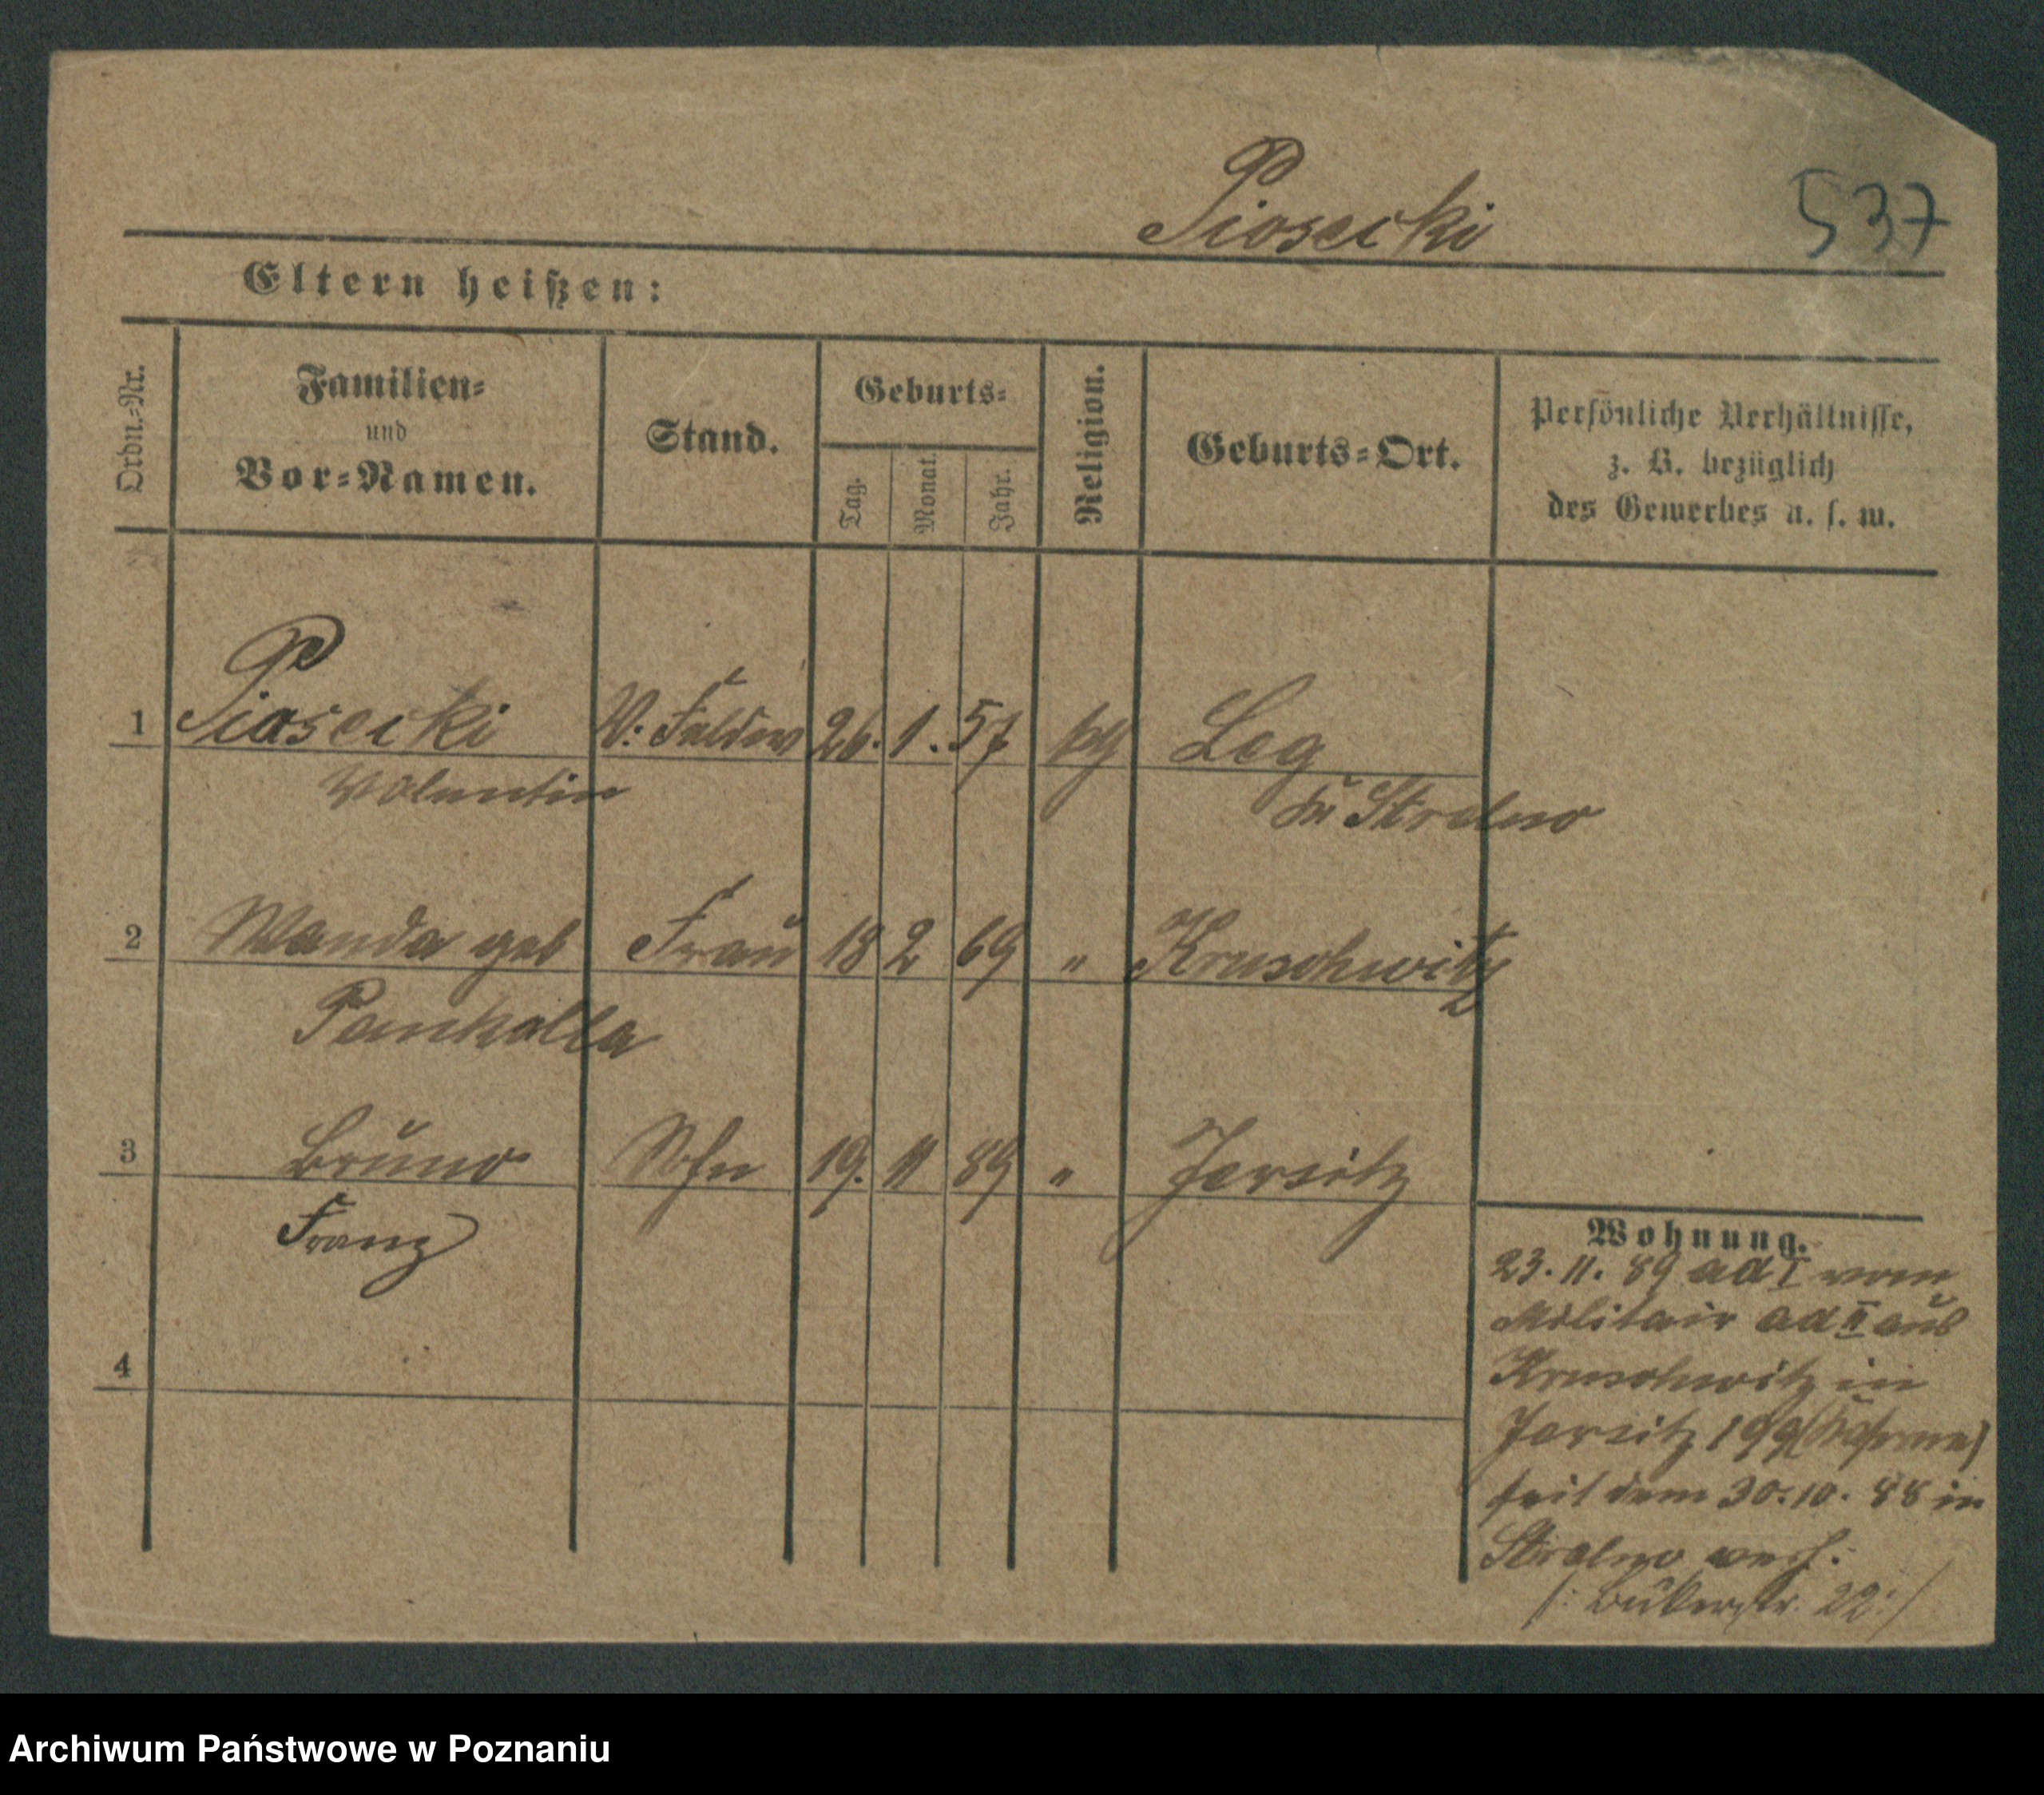 Piosecki
537
Eltern heißen:
Ordn.-Nr.
Familien-
und
Vor-Namen.
Stand.
Geburts-
Tag.
Monat.
Jahr.
Religion.
Geburts-Ort.
Persönliche Verhältnisse,
z. B. bezüglich
des Gewerbes u. s. w.
1 Piosecki 26. 1. 57 Leg
Valentin Kr. Strelno
2 Wanda geb Frau 18 2 69 " Kruschwitz
Pankalla
3 Bruno Sohn 19. 11 89 " Jersitz
Franz
4
Wohnung.
23. 11. 89 ad I vom
Militair ad II aus
Kruschwitz in
Jersitz 199
seit dem 30. 10. 88 in
Strelno verh.
/: Bukerstr. 22 :/
Archiwum Państwowe w Poznaniu